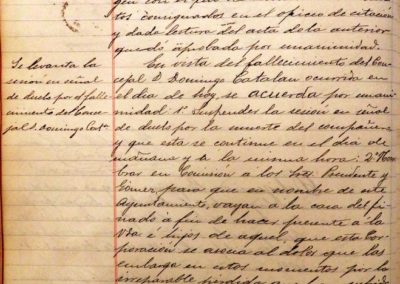 tos consignados en el oficio de citacion
y dada lectura del acta de la anterior
quedó aprobada por unanimidad.
Se levanta la
sesión en señal
de duelo por el falle
cimiento del Conce
jal D. Domingo Catn.
En vista del fallecimiento del Con
cejal D. Domingo Catalan ocurrido en
el dia de hoy, se acuerda por unani
midad 1º Suspender la sesión en señal
de duelo por la muerte del compañero
y que esta se continue en el dia de
mañana y a la misma hora: 2º Nom
brar en Comisión a los Sres. Presidente y
Gómez para que en nombre de este
Ayuntamiento, vayan a la casa del fi
nado a fin de hacer presente a la
Vda é hijos de aquel, que esta Cor
poración se asocia al dolor que les
embarga en estos momentos por la
irreparable pérdida